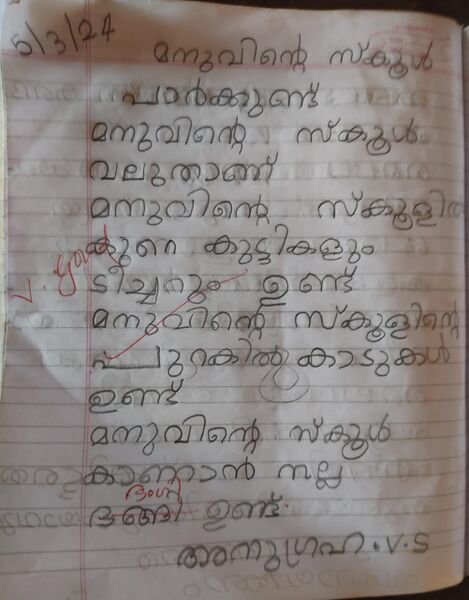 5/3/24
മനുവിന്റെ സ്കൂൾ
പാർക്കുണ്ട്
മനുവിന്റെ സ്കൂൾ
വലുതാണ്
മനുവിന്റെ സ്കൂളിൽ
കുറെ കുട്ടികളും
v. good
ടീച്ചറും ഉണ്ട്
മനുവിന്റെ സ്കൂളിന്റെ
പുറകിൽ കാടുകൾ
ഉണ്ട്
മനുവിന്റെ സ്കൂൾ
കാണാൻ നല്ല
ഭംഗി
ഭങ്ങി ഉണ്ട്.
അനുഗ്രഹ.V.S